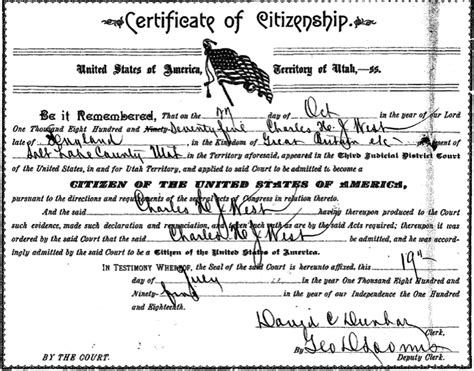 Certificate of Citizenship.
United States of America, Territory of Utah,—ss.
Be it Remembered, That on the day of Oct in the year of our Lord
One Thousand Eight Hundred and Ninety- Seventy five Charles H. J. West
late of England in the Kingdom of Great Britain etc- ent of
Salt Lake County Utah in the Territory aforesaid, appeared in the Third Judicial District Court
of the United States, in and for Utah Territory, and applied to said Court to be admitted to become a
CITIZEN OF THE UNITED STATES OF AMERICA,
pursuant to the directions and requirements of the several acts of Congress in relation thereto.
And the said Charles H. J. West having thereupon produced to the Court
such evidence, made such declaration and renunciation, and taken such oaths as are by the said Acts required; thereupon it was
ordered by the said Court that the said Charles H. J West be admitted, and he was accord-
ingly admitted by the said Court to be a Citizen of the United States of America.
In Testimony Whereof, the Seal of the said Court is hereunto affixed, this 19th
day of July in the year One Thousand Eight Hundred and
Ninety- five in the year of our Independence the One Hundred
and Eighteenth.
David C Dunbar Clerk.
BY THE COURT. Geo D Loomis Deputy Clerk.